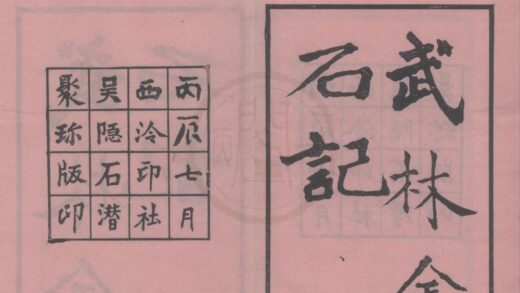 武林金
石記
丙辰七月
西泠印社
吴隐石潜
聚珍版印